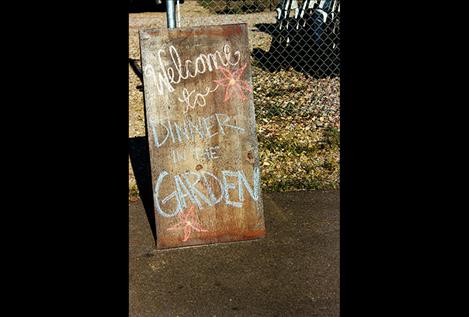 Welcome
to
DINNER
IN THE
GARDEN